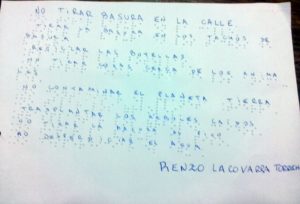 NO TIRAR BASURA EN LA CALLE
TIRAR LA BASURA EN LOS TACHOS DE
BASURA
RECICLAR LAS BOTELLAS
NO TIRAR LAS CACA DE LOS ANIMA
LES
NO CONTAMINAR EL PLANETA TIERRA
TRASPLANTAR LOS ARBOLES CAIDOS
NO TIRAR LA BASURA AL PISO
NO DESPERDICIAR EL AGUA
RENZO LACOVARRA